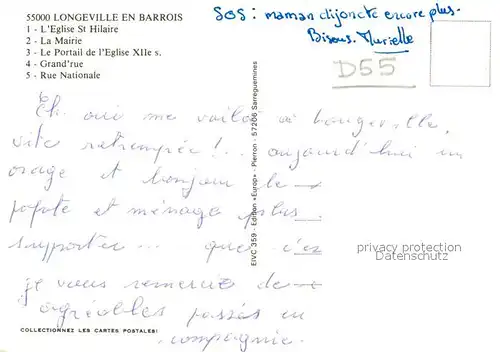 55000 LONGEVILLE EN BARROIS
1 - L'Eglise St Hilaire
2 - La Mairie
3 - Le Portail de l'Eglise XIIe s.
4 - Grand'rue
5 - Rue Nationale
SOS : maman disjoncte encore plus.
Bisous. Murielle
D55
Eh oui me voilà à Longeville,
vite retrempée!... aujourd'hui un
orage et bonjour le
popote et ménage plus
supporter... que c'es
je vous remercie de
agréables passés en
compagnie.
EIVC 359 - Edition «Europ» - Pierron - 57206 Sarreguemines
privacy protection
Datenschutz
COLLECTIONNEZ LES CARTES POSTALES!